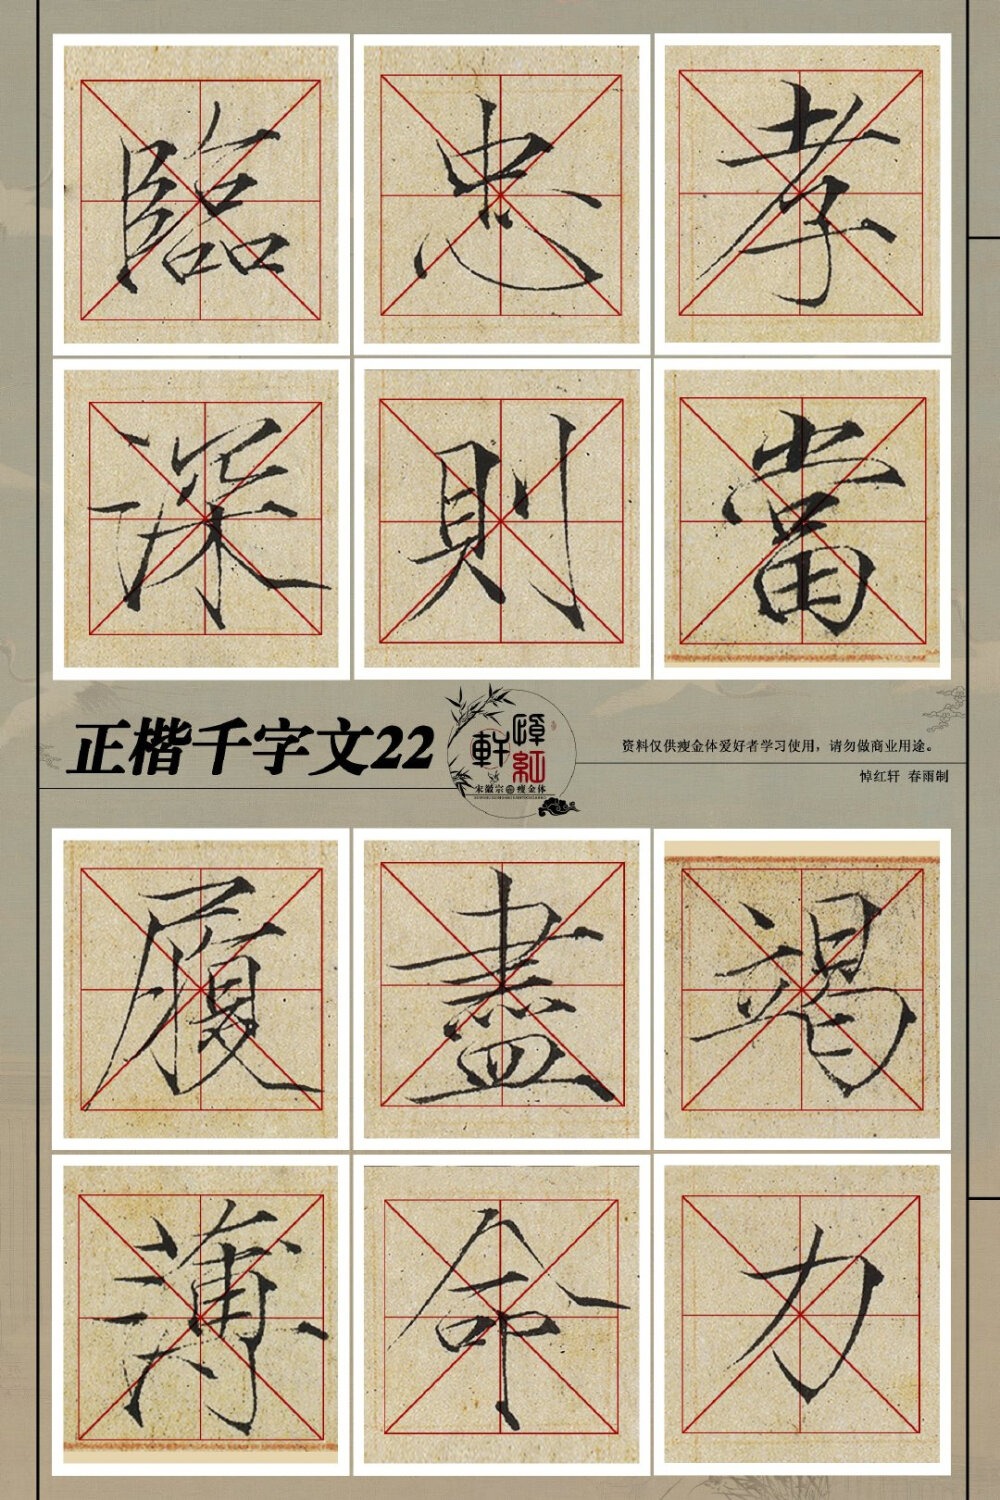 孝當竭力
忠則盡命
臨深履薄
正楷千字文22
悼紅
軒
宋徽宗瘦金体
资料仅供瘦金体爱好者学习使用，请勿做商业用途。
悼红轩 春雨制